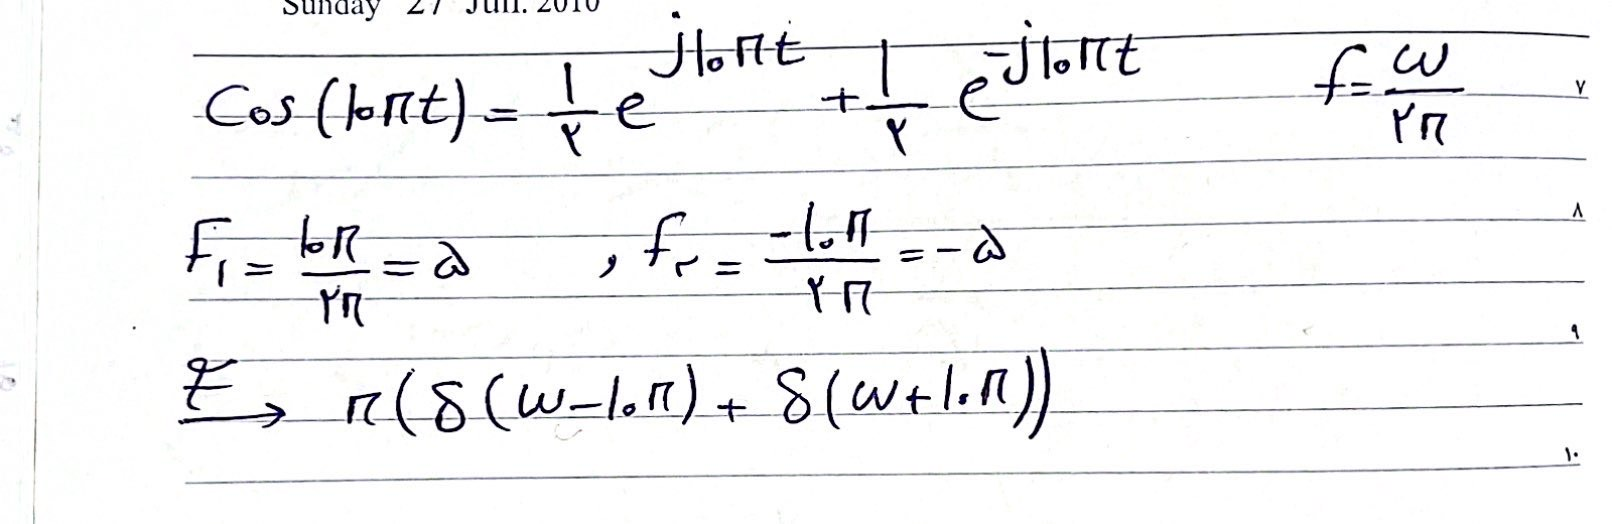 Sunday 27 Jun. 2010
Cos(10πt) = ۱/۲ e^(j10πt) + ۱/۲ e^(-j10πt)    f = ω/۲π    ۷
F۱ = 10π/۲π = ۵ , f۲ = -۱۰π/۲π = -۵    ۸
۹
F→ π(δ(ω-۱۰π) + δ(ω+۱۰π))
۱۰